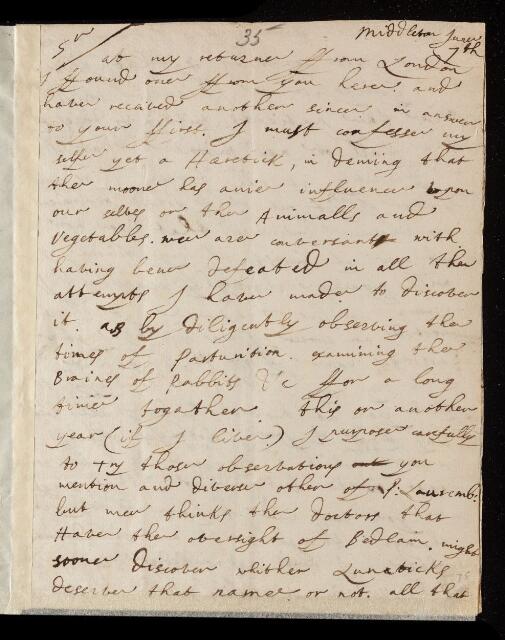 35
Middleton June
7th
Sr
at my returne ffrom London
I ffound one ffrom you here, and
have received another since in answer
to your ffirst. I must confesse my
selfe yet a Haretick, in deniing that
the moone has anie influence upon
our selves or the Animalls and
Vegetables wee are conversant with
having bene defeated in all the
attempts I have made to discover
it. as by diligently observing the
times of Parturition. examining the
Braines of Rabbits &c ffor a long
time togather this or another
year (if I live) I purpose carfully
to try those observations you
mention and diverse other of P. Lauremb:
but mee thinks the doctors that
Have the oversight of Bedlam, might
sooner discover whither Lunaticks
deserve that name or not. all that